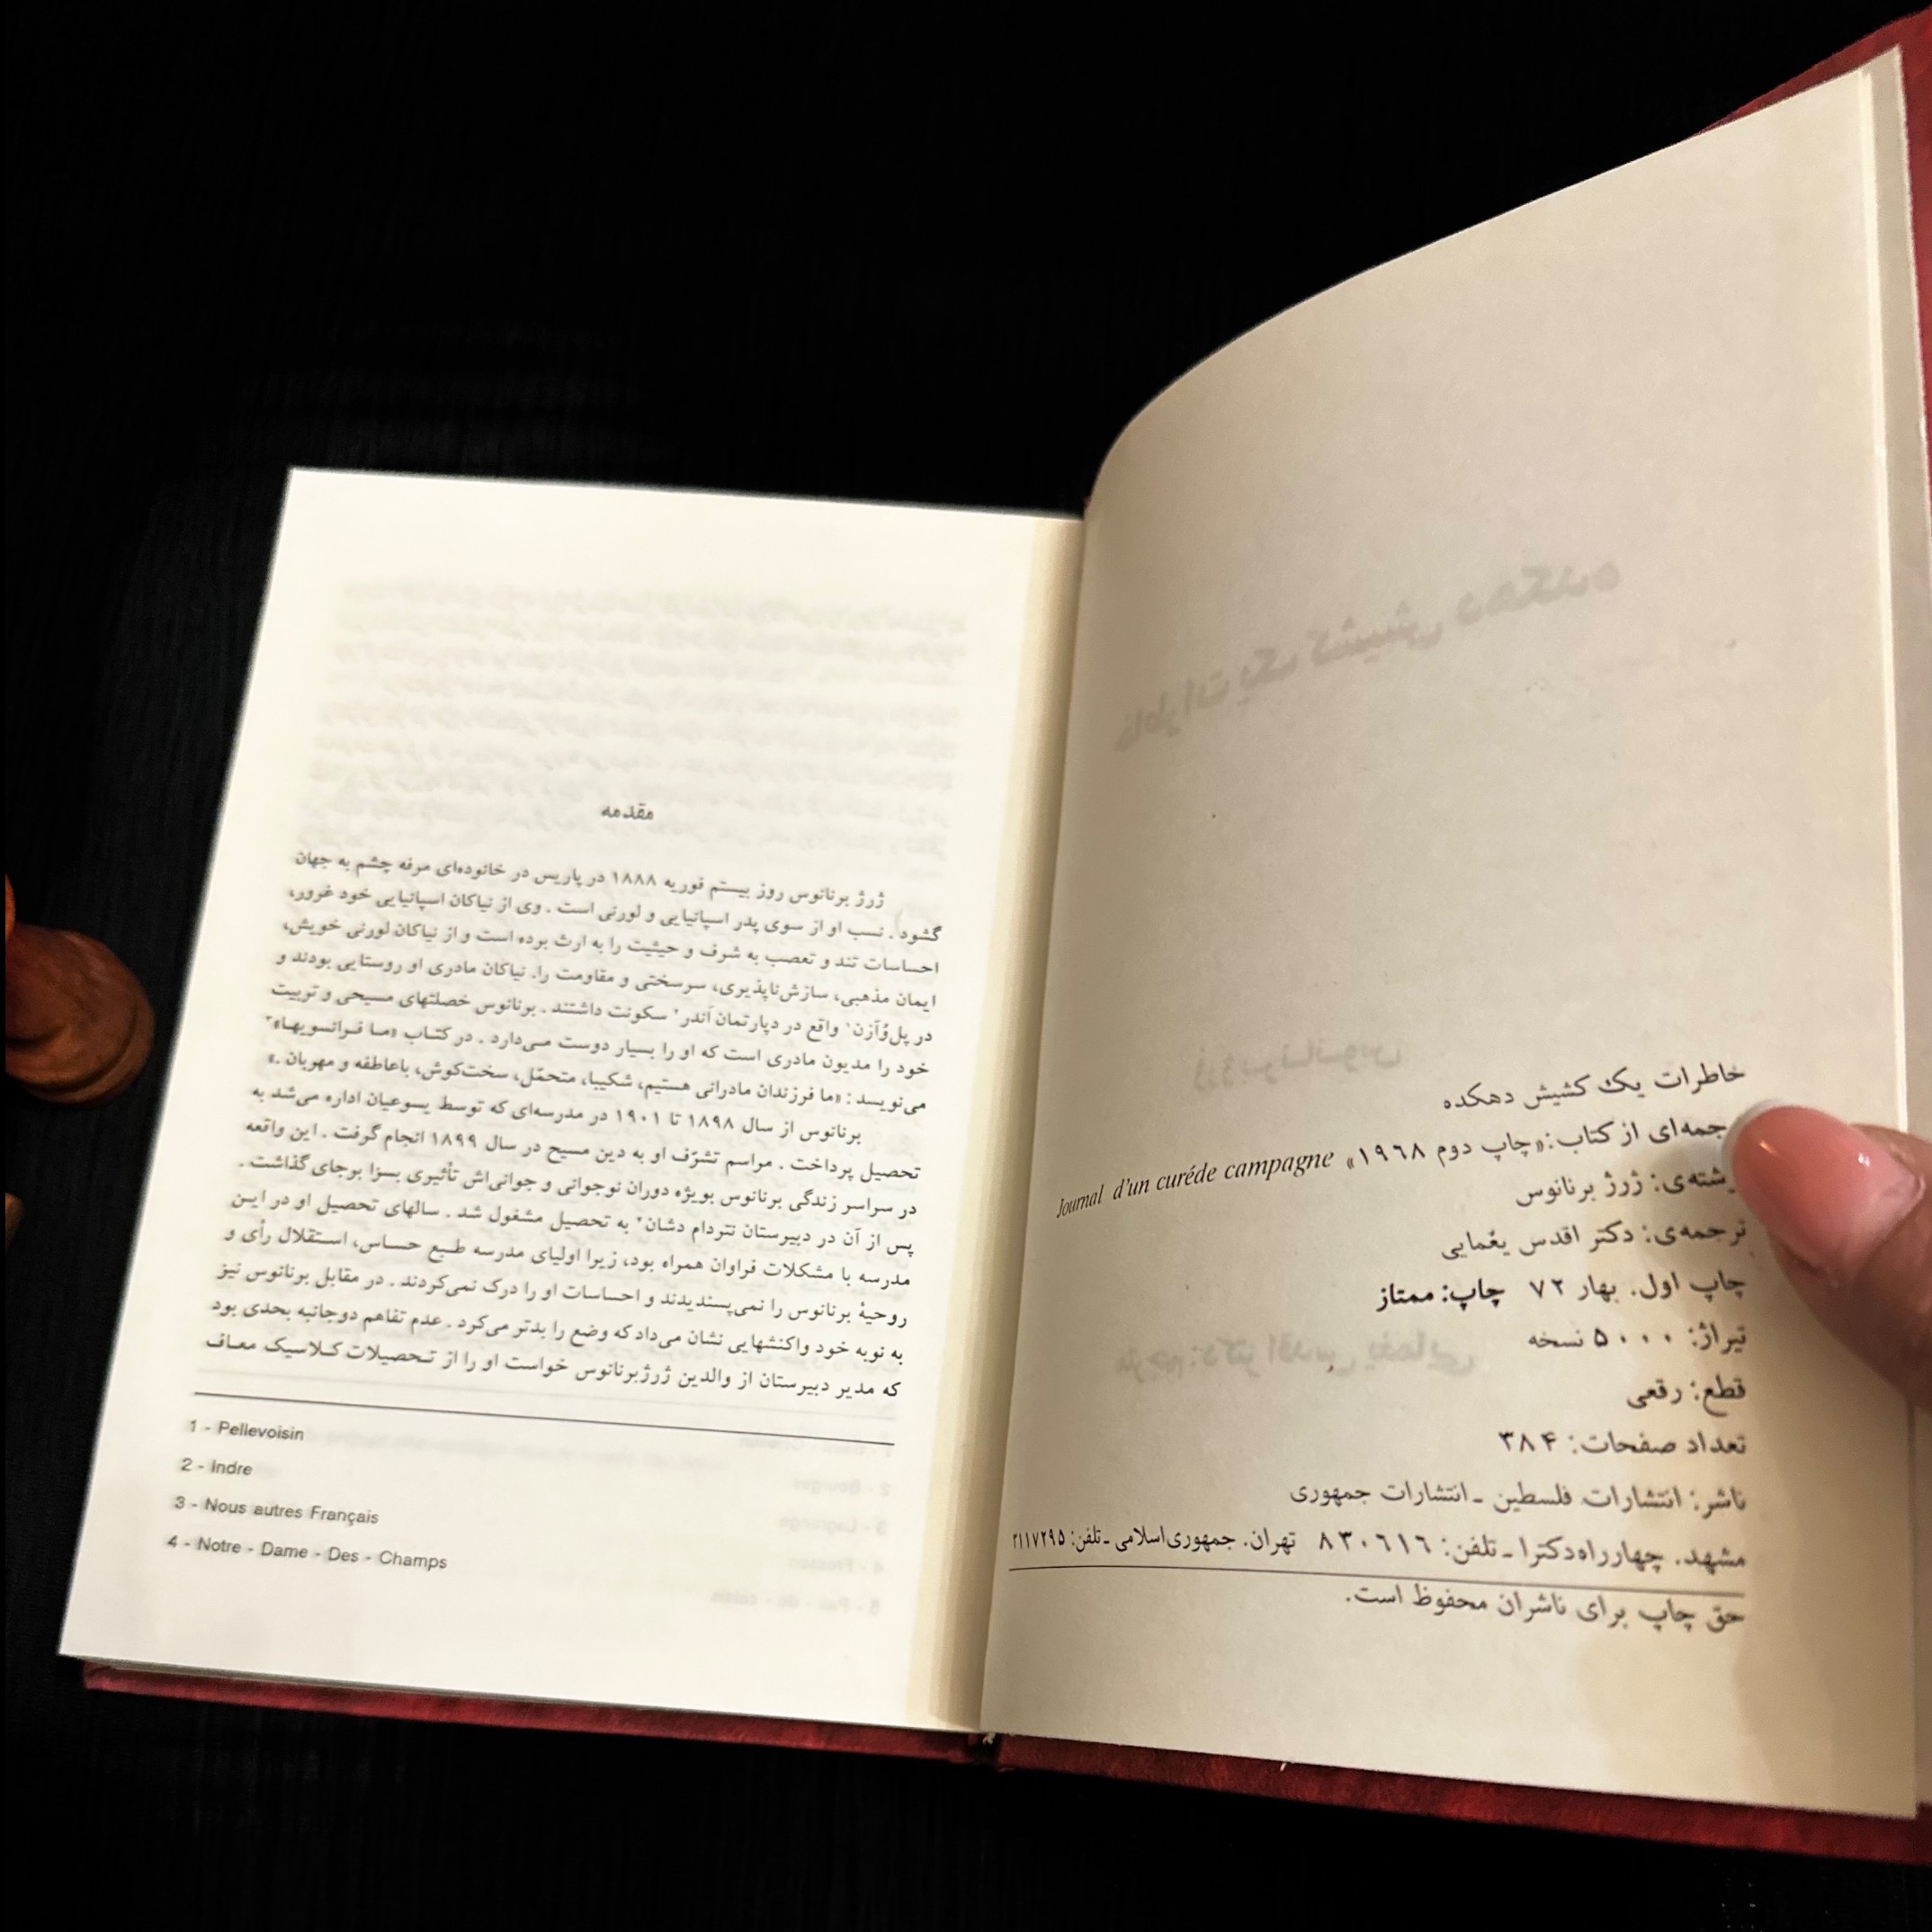 خاطرات یک کشیش دهکده
جمه‌ای از کتاب: «چاپ دوم ۱۹۶۸» Journal d'un curéde campagne
شته‌ی: ژرژ برنانوس
ترجمه‌ی: دکتر اقدس یغمایی
چاپ اول. بهار ۷۲ چاپ: ممتاز
تیراژ: ۵۰۰۰ نسخه
قطع: رقعی
تعداد صفحات: ۳۸۴
ناشر: انتشارات فلسطین ـ انتشارات جمهوری
مشهد. چهارراه‌دکترا ـ تلفن: ۸۳۰۶۱۶ تهران. جمهوری‌اسلامی ـ تلفن: ۳۱۱۷۲۹۵
حق چاپ برای ناشران محفوظ است.
مقدمه
ژرژ برنانوس روز بیستم فوریه ۱۸۸۸ در پاریس در خانوده‌ای مرفه چشم به جهان
گشود. نسب او از سوی پدر اسپانیایی و لورنی است. وی از نیاکان اسپانیایی خود غرور،
احساسات تند و تعصب به شرف و حیثیت را به ارث برده است و از نیاکان لورنی خویش،
ایمان مذهبی، سازش‌ناپذیری، سرسختی و مقاومت را. نیاکان مادری او روستایی بودند و
در پل‌وُآزن۱ واقع در دپارتمان آندر۲ سکونت داشتند. برنانوس خصلتهای مسیحی و تربیت
خود را مدیون مادری است که او را بسیار دوست می‌دارد. در کتاب «ما فرانسویها»۳
می‌نویسد: «ما فرزندان مادرانی هستیم، شکیبا، متحمّل، سخت‌کوش، باعاطفه و مهربان.»
برنانوس از سال ۱۸۹۸ تا ۱۹۰۱ در مدرسه‌ای که توسط یسوعیان اداره می‌شد به
تحصیل پرداخت. مراسم تشرّف او به دین مسیح در سال ۱۸۹۹ انجام گرفت. این واقعه
در سراسر زندگی برنانوس بویژه دوران نوجوانی و جوانی‌اش تأثیری بسزا برجای گذاشت.
پس از آن در دبیرستان نتردام دشان۴ به تحصیل مشغول شد. سالهای تحصیل او در این
مدرسه با مشکلات فراوان همراه بود، زیرا اولیای مدرسه طبع حساس، استقلال رأی و
روحیۀ برنانوس را نمی‌پسندیدند و احساسات او را درک نمی‌کردند. در مقابل برنانوس نیز
به نوبه خود واکنشهایی نشان می‌داد که وضع را بدتر می‌کرد. عدم تفاهم دوجانبه بحدی بود
که مدیر دبیرستان از والدین ژرژبرنانوس خواست او را از تحصیلات کلاسیک معاف
1 - Pellevoisin
2 - Indre
3 - Nous autres Français
4 - Notre - Dame - Des - Champs